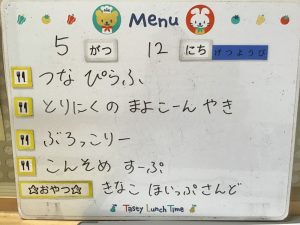 Menu
5 がつ 12 にち げつようび
つな ぴらふ
とりにくの まよこーん やき
ぶろっこりー
こんそめ すーぷ
☆おやつ☆ きなこ ほいっぷさんど
Tasty Lunch Time